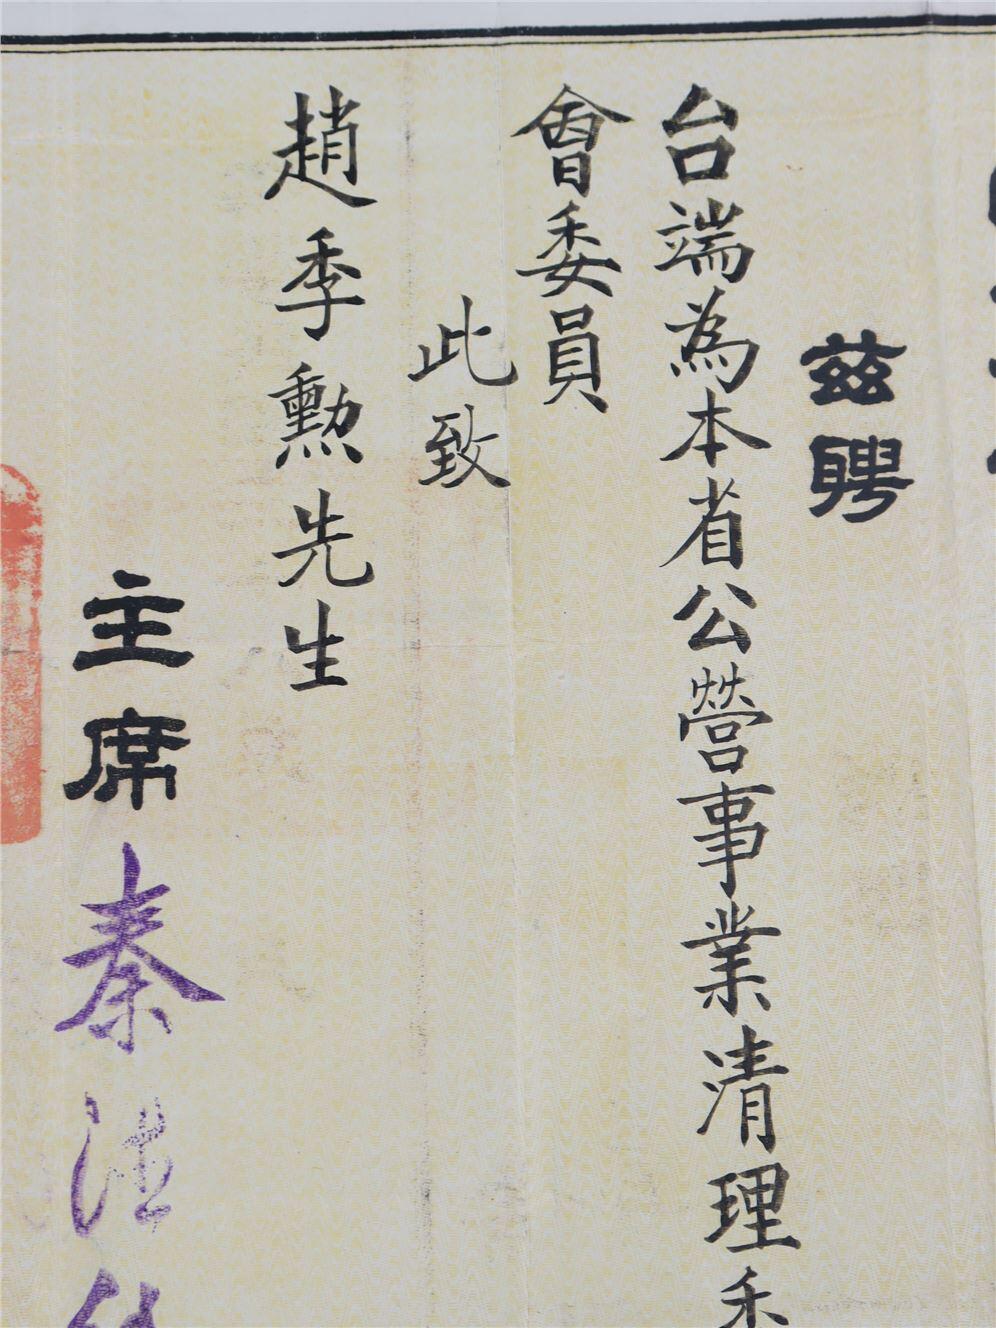 茲聘
台端為本省公營事業清理委
會委員
此致
趙季勲先生
主席秦德